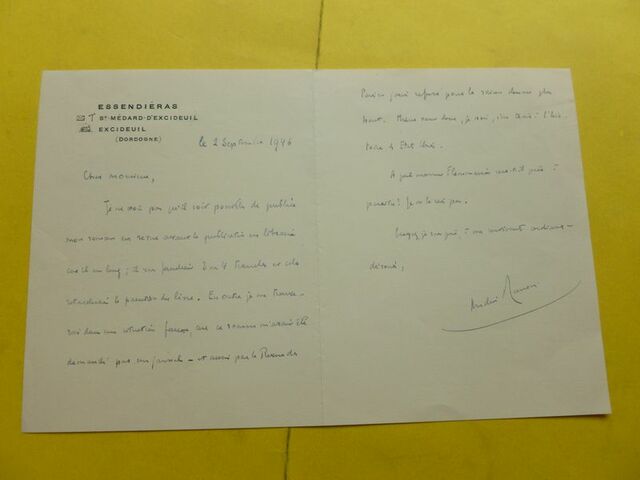 ESSENDIÉRAS
St-MÉDARD-D'EXCIDEUIL
EXCIDEUIL
(DORDOGNE)
le 2 Septembre 1946
Cher monsieur,
Je ne crois pas qu'il soit possible de publier
mon roman en revue avant la publication en librairie
car il est long ; il en faudrait 3 ou 4 tranches et cela
retarderait la parution du livre. En outre je me trouve-
rai dans une situation fausse, car ce roman m'avait été
demandé par un journal - et aussi par la Revue de
Paris ; j'ai refusé pour la raison donnée plus
haut.
A quel moment
paraître ? Je ne le sais pas.
Croyez, je vous prie, à mes sentiments
dévoués,
André Maurois